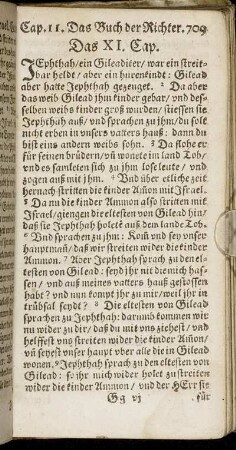 Cap. 11. Das Buch der Richter. 709
Das XI. Cap.
JEphthah/ ein Gileaditer/ war ein streit-
bar heldt/ aber ein hurenkindt: Gilead
aber hatte Jephthah gezeuget. ² Da aber
das weib Gilead jhm kinder gebar/ und des-
selben weibs kinder groß wurden/ stiessen sie
Jephthah auß/ und sprachen zu jhm/ du solt
nicht erben in unsers vatters hauß: dann du
bist eins andern weibs sohn. ³ Da flohe er
für seinen brüdern/ uñ wonete im land Tob/
und es samleten sich zu jhm lose leute/ und
zogen auß mit jhm. ⁴ Und über etliche zeit
hernach stritten die kinder Am̃on mit Jsrael.
⁵ Da nu die kinder Ammon also stritten mit
Jsrael/ giengen die eltesten von Gilead hin/
daß sie Jephthah holetẽ auß dem lande Tob.
⁶ Und sprachen zu jhm: Kom̃ uñ sey unser
hauptman/ daß wir streiten wider die kinder
Ammon. ⁷ Aber Jephthah sprach zu den el-
testen von Gilead: seyd jhr nit die mich has-
sen/ und auß meines vatters hauß gestossen
habt? und nun kompt jhr zu mir/ weil jhr in
trübsal seydt? ⁸ Die eltesten von Gilead
sprachen zu Jephthah: darumb kommen wir
nu wider zu dir/ daß du mit uns ziehest/ und
helffest uns streiten wider die kinder Am̃on/
uñ seyest unser haupt über alle die in Gilead
wonen. ⁹ Jephthah sprach zu den eltesten
von Gilead: so jhr mich wider holet zu streiten
wider die kinder Ammon/ und der HErr sie
Gg vj für